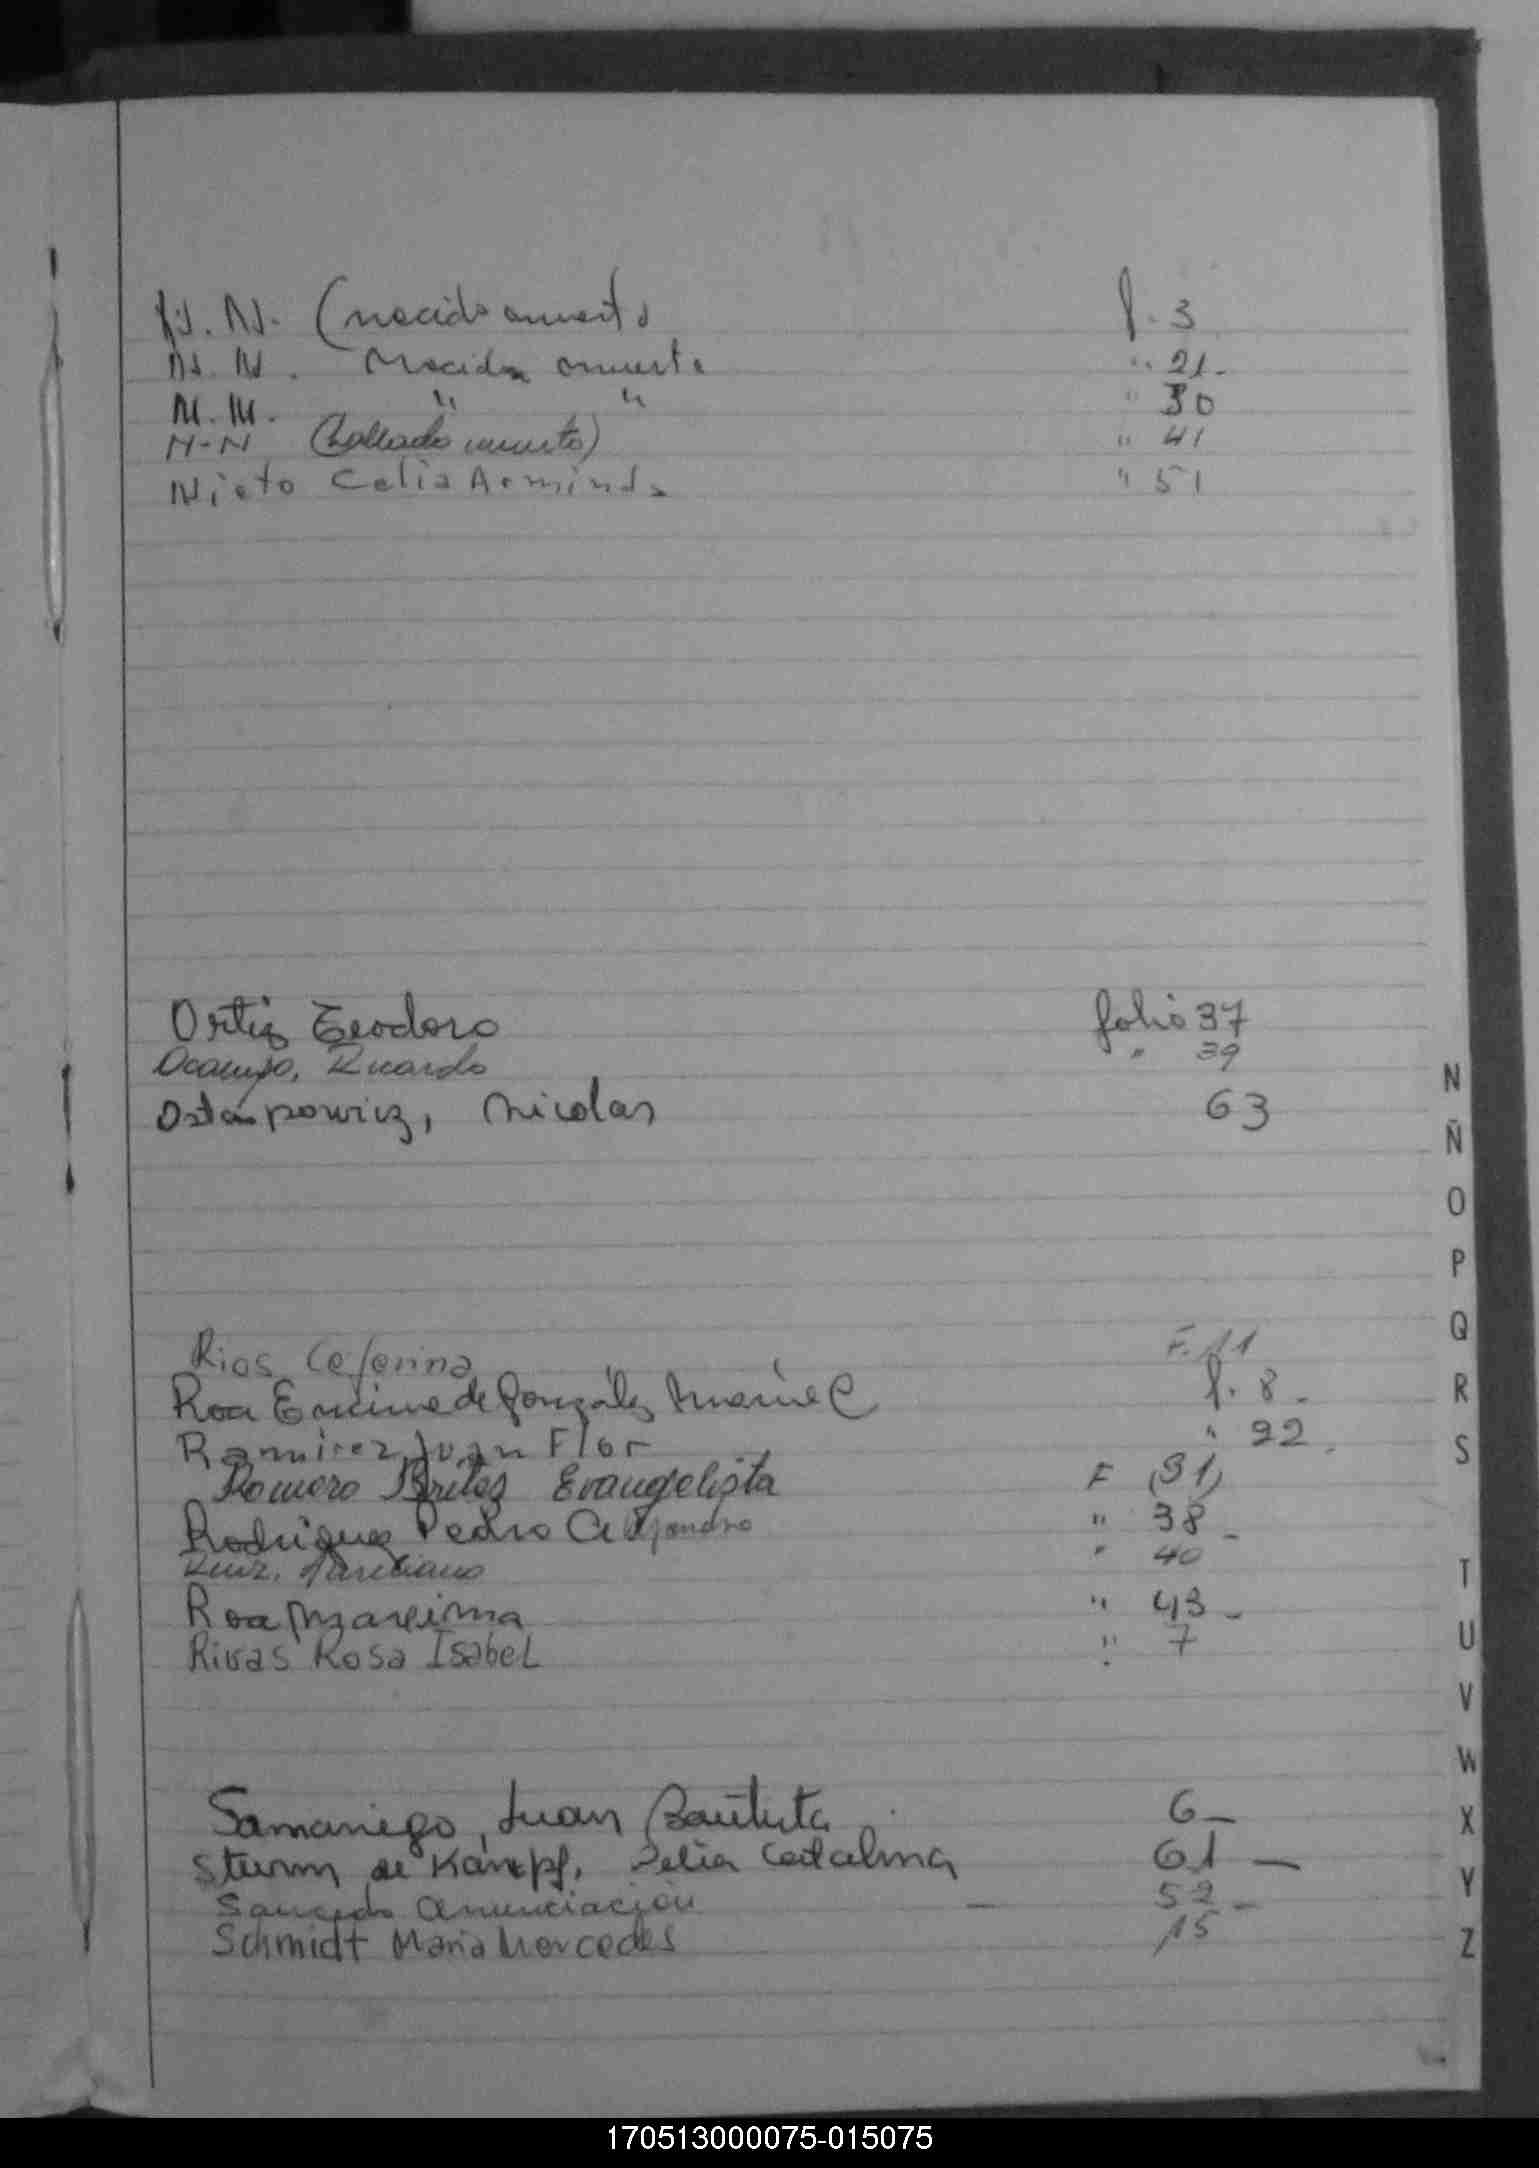 N. N. (nacido muerto f. 3
N. N. Nacida muerta " 21-
N. N. " " " 30
N-N (hallado muerto) " 41
Nieto Celia Arminda " 51
Ortiz Teodoro folio 37
Ocampo, Ricardo " 39
Ostapowicz, Nicolas 63
Rios Ceferina F. 11
Roa Encina de González María C f. 8-
Ramirez, Juan Flor " 22.
Romero Britez Evangelista F (31)
Rodriguez Pedro Alejandro " 38-
Ruiz, " 40
Roa Maxima " 43-
Rivas Rosa Isabel " 7
Samaniego, Juan Bautista 6-
Sturm de Kämpf, Delia Catalina 61-
Saucedo Anunciación - 52-
Schmidt Maria Mercedes 15
N
Ñ
O
P
Q
R
S
T
U
V
W
X
Y
Z
170513000075-015075